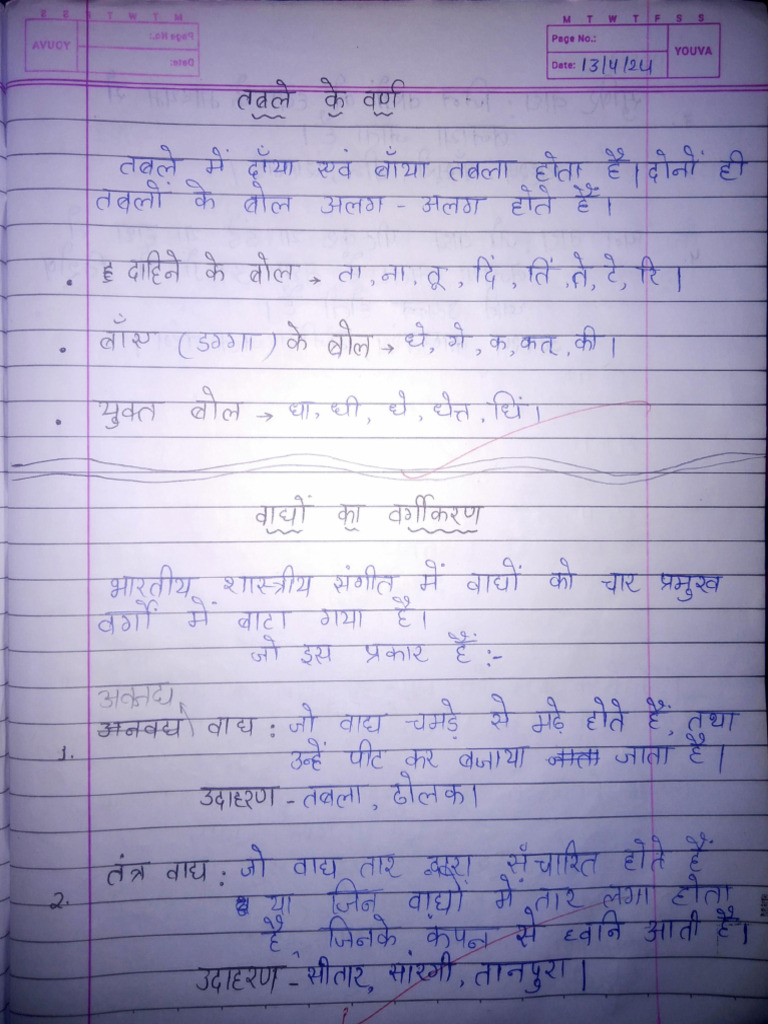 M T W T F S S
Page No.:
YOUVA
Date: 13/4/24
तबले के वर्ण
तबले में दाँया एवं बाँया तबला होता है। दोनों ही
तबलों के बोल अलग - अलग होते हैं।
• दाहिने के बोल → ता, ना, तू, दिं, तिं, ते, टे, रि।
• बाँए (डग्गा) के बोल → घे, गे, क, कत्, की।
• युक्त बोल → धा, धी, धे, धेत्त, धिं।
वाद्यों का वर्गीकरण
भारतीय शास्त्रीय संगीत में वाद्यों को चार प्रमुख
वर्गों में बाटा गया है।
जो इस प्रकार हैं :-
अवनद्य
1. अनवद्य वाद्य : जो वाद्य चमड़े से मढ़े होते हैं, तथा
उन्हें पीट कर बजाया जाता है।
उदाहरण - तबला, ढोलक।
2. तंत्र वाद्य : जो वाद्य तार द्वारा संचारित होते हैं
या जिन वाद्यों में तार लगा होता
है, जिनके कंपन से ध्वनि आती है।
उदाहरण - सीतार, सांरगी, तानपुरा।